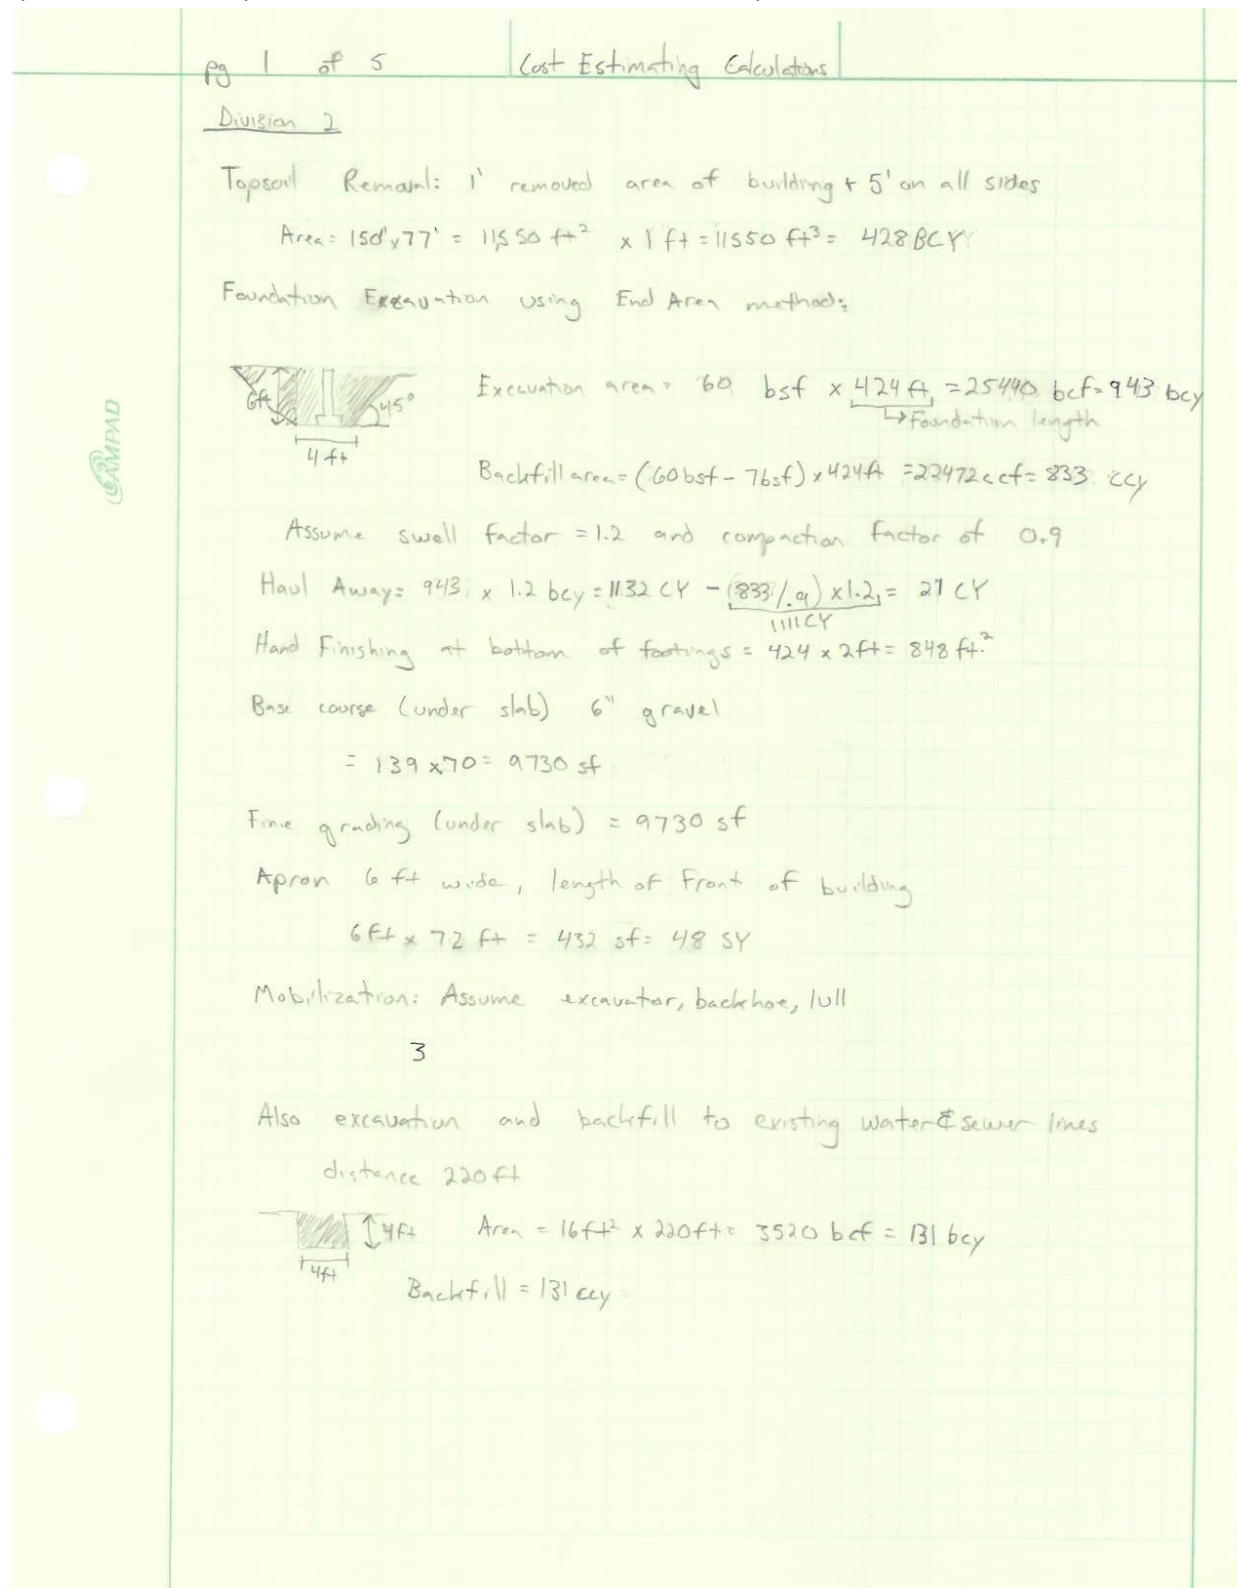 pg 1 of 5 Cost Estimating Calculations
Division 2
Topsoil Removal: 1' removed area of building + 5' on all sides
Area= 150'x77' = 11,550 ft² x 1 ft = 11550 ft³ = 428 BCY
Foundation Excavation using End Area method:
6ft 45°
4 ft
Excavation area = 60 bsf x 424 ft = 25440 bcf = 943 bcy
↳ Foundation length
Backfill area = (60 bsf - 7bsf) x 424ft = 22472 ccf = 833 ccy
Assume swell factor = 1.2 and compaction factor of 0.9
Haul Away = 943 x 1.2 bcy = 1132 CY - (833/.9) x 1.2 = 21 CY
1111 CY
Hand Finishing at bottom of footings = 424 x 2ft = 848 ft.²
Base course (under slab) 6" gravel
= 139 x 70 = 9730 sf
Fine grading (under slab) = 9730 sf
Apron 6 ft wide, length of front of building
6 ft x 72 ft = 432 sf = 48 SY
Mobilization: Assume excavator, backhoe, lull
3
Also excavation and backfill to existing water & sewer lines
distance 220 ft
4ft Area = 16 ft² x 220ft = 3520 bcf = 131 bcy
4ft
Backfill = 131 ccy
AMPAD